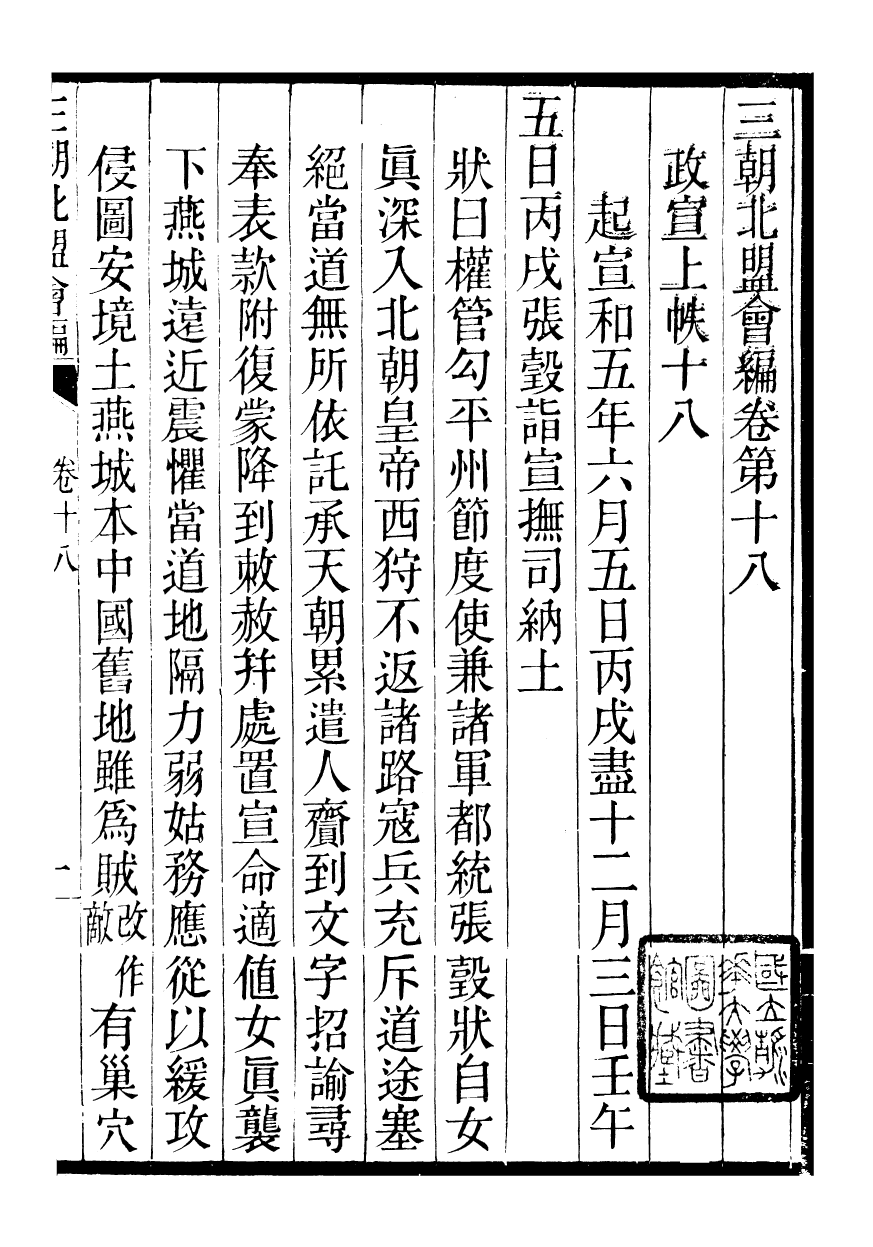 三朝北盟會編卷第十八
政宣上帙十八
起宣和五年六月五日丙戌盡十二月三日壬午
五日丙戌張瑴詣宣撫司納土
狀曰權管勾平州節度使兼諸軍都統張瑴狀自女
眞深入北朝皇帝西狩不返諸路寇兵充斥道途塞
絕當道無所依託承天朝累遣人齎到文字招諭尋
奉表款附復蒙降到敕赦幷處置宣命適値女眞襲
下燕城遠近震懼當道地隔力弱姑務應從以緩攻
侵圖安境土燕城本中國舊地雖爲賊改作敵有巢穴
三朝北盟會編
卷十八
一
國立清華大學圖書館藏